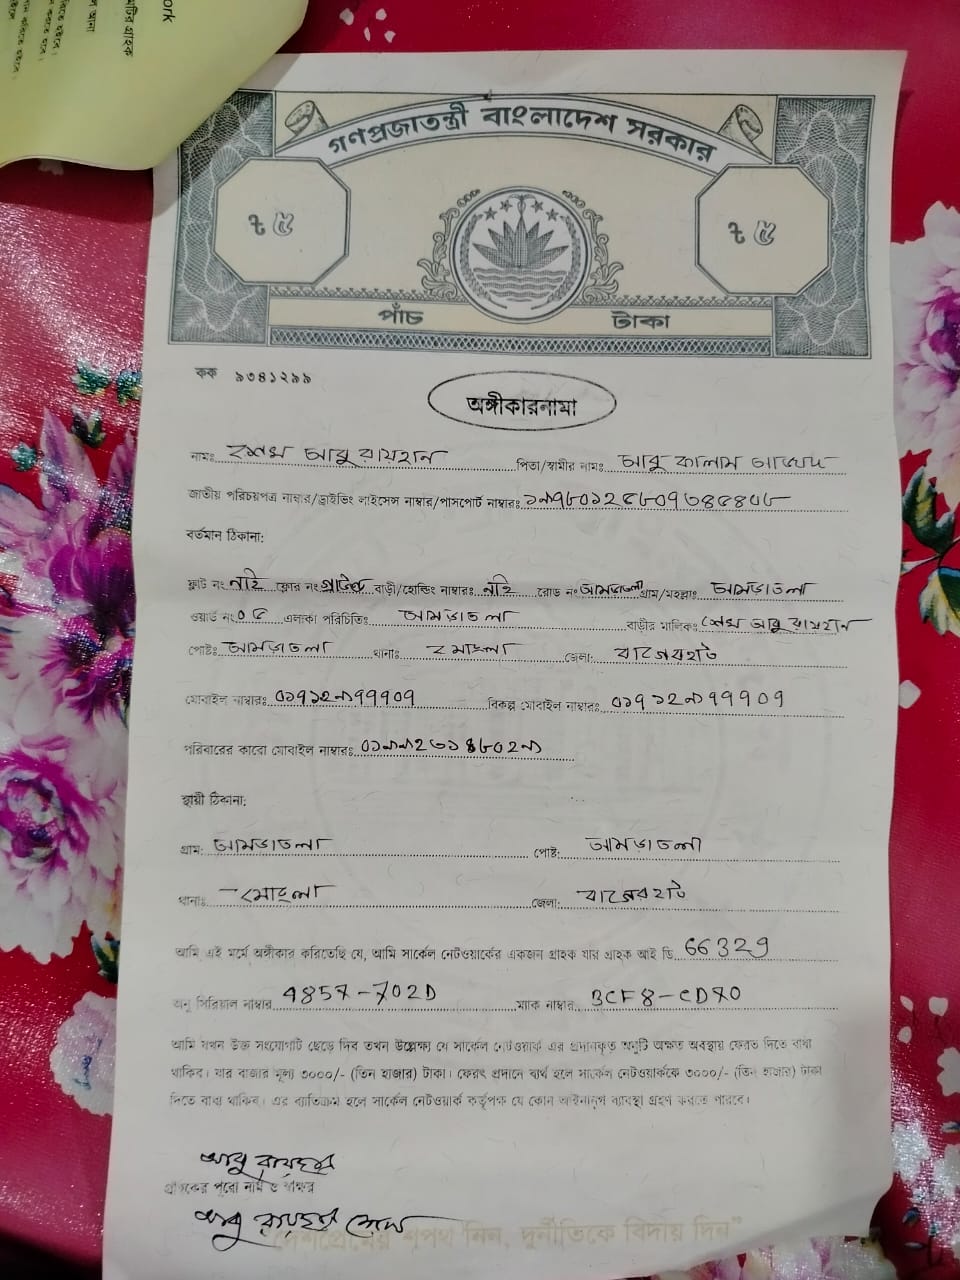 গণপ্রজাতন্ত্রী বাংলাদেশ সরকার
৳ ৫ ৳ ৫
পাঁচ টাকা
কক ৯৩৪১২৯৯
অঙ্গীকারনামা
নামঃ শেখ আবু রায়হান পিতা/স্বামীর নামঃ আবু কালাম
জাতীয় পরিচয়পত্র নাম্বার/ড্রাইভিং লাইসেন্স নাম্বার/পাসপোর্ট নাম্বারঃ
বর্তমান ঠিকানা:
ফ্লাট নং নাই ফ্লোর নং বাড়ী/হোল্ডিং নাম্বারঃ নাই রোড নং আমড়াতলা গ্রাম/মহল্লাঃ আমড়াতলা
ওয়ার্ড নং ০৫ এলাকা পরিচিতিঃ আমড়াতলা বাড়ীর মালিকঃ শেখ আবু রায়হান
পোষ্টঃ আমড়াতলা থানাঃ মোংলা জেলা: বাগেরহাট
মোবাইল নাম্বারঃ ০১৭১২৯৭৭৭০৭ বিকল্প মোবাইল নাম্বারঃ ০১৭১২৯৭৭৭০৭
পরিবারের কারো মোবাইল নাম্বারঃ
স্থায়ী ঠিকানা:
গ্রাম: আমড়াতলা পোষ্ট: আমড়াতলা
থানাঃ মোংলা জেলা: বাগেরহাট
আমি এই মর্মে অঙ্গীকার করিতেছি যে, আমি সার্কেল নেটওয়ার্কের একজন গ্রাহক যার গ্রাহক আই ডি 66329
অনু সিরিয়াল নাম্বার 4857-702D ম্যাক নাম্বার BCF8-CD70
আমি যখন উক্ত সংযোগটি ছেড়ে দিব তখন উল্লেখ্য যে সার্কেল নেটওয়ার্ক এর প্রদানকৃত অনুটি অক্ষত অবস্থায় ফেরত দিতে বাধ্য
থাকিব। যার বাজার মূল্য ৩০০০/- (তিন হাজার) টাকা। ফেরৎ প্রদানে ব্যর্থ হলে সার্কেল নেটওয়ার্ককে ৩০০০/- (তিন হাজার) টাকা
দিতে বাধ্য থাকিব। এর ব্যতিক্রম হলে সার্কেল নেটওয়ার্ক কর্তৃপক্ষ যে কোন আইনানুগ ব্যবস্থা গ্রহণ করতে পারবে।
আবু রায়হান
গ্রাহকের পুরো নাম ও স্বাক্ষর
আবু রায়হান শেখ
"দেশপ্রেমের শপথ নিন, দুর্নীতিকে বিদায় দিন"